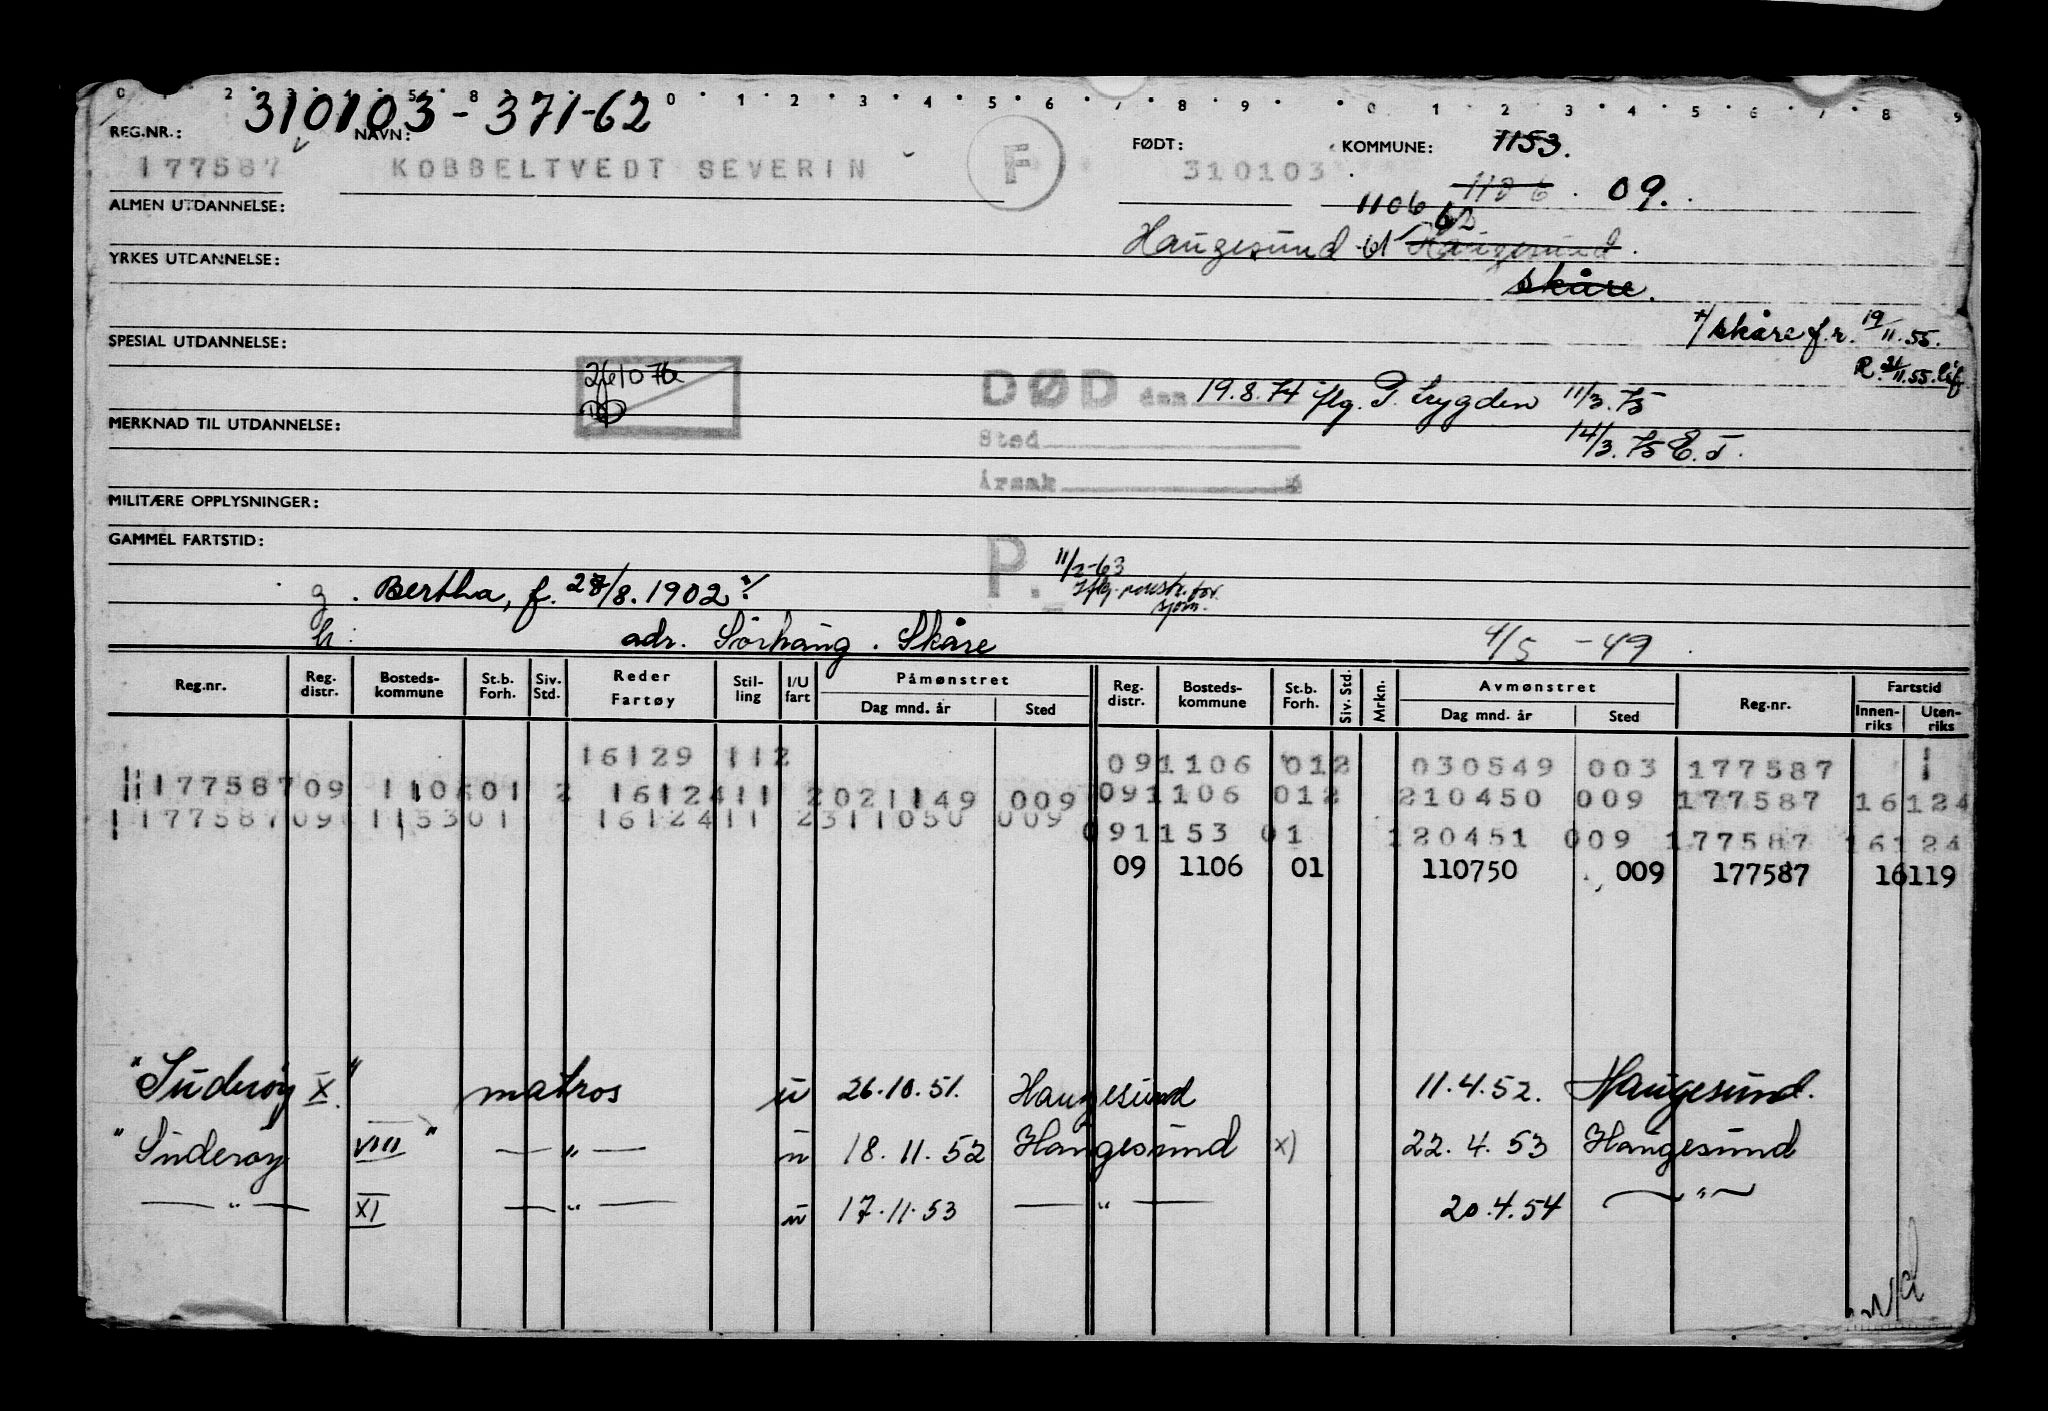 0 1 2 3 4 5 8 0 1 2 3 4 5 6 7 8 9 0 1 2 3 4 5 6 7 8 9
310103-371-62
REG.NR.: NAVN: FØDT: KOMMUNE: 1153.
177587 KOBBELTVEDT SEVERIN F 310103
1106 1106 09.
ALMEN UTDANNELSE:
Haugesund 61 62 Haugesund.
YRKES UTDANNELSE:
Skåre.
x/ Skåre f.r. 19/11.55.
SPESIAL UTDANNELSE:
R. 21/11.55.
DØD den 19.8.74 iflg. P. Trygden 11/3.75
MERKNAD TIL UTDANNELSE:
Sted 14/3.75 E.T.
Årsak
MILITÆRE OPPLYSNINGER:
GAMMEL FARTSTID:
P. 11/2-63
g. Bertha, f. 27/8.1902
adr. Sörhaug. Skåre 4/5 -49
Reg.nr. Reg. distr. Bosteds-kommune St.b. Forh. Siv. Std. Reder Fartøy Stil-ling I/U fart Påmønstret Dag mnd. år Sted Reg. distr. Bosteds-kommune St.b. Forh. Siv. Std. Mrkn. Avmønstret Dag mnd. år Sted Reg.nr. Fartstid Innen-riks Uten-riks
16129 112 091106 012 030549 003 177587 1
17758709 110601 2 1612411 2021149 009 091106 012 210450 009 177587 16124
17758709 115301 1612411 2311050 009 091153 01 120451 009 177587 16124
09 1106 01 110750 009 177587 16119
"Suderøy X" matros u 26.10.51. Haugesund 11.4.52. Haugesund.
"Suderøy VIII" — " — u 18.11.52 Haugesund x) 22.4.53 Haugesund
— " — XI — " — u 17.11.53 — " — 20.4.54 — " —